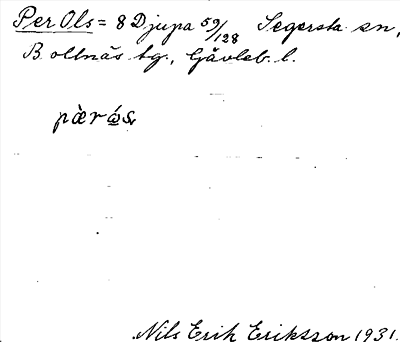 Per Ols = 8 Djupa 59/128 Segersta sn,
Bollnäs tg., Gävleb. l.
pàrós
Nils Erik Eriksson 1931.